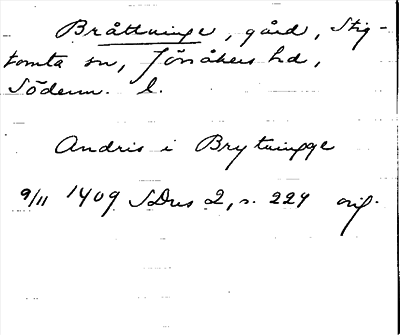 Bråttninge, gård, Stig-
tomta sn, Jönåkers hd,
Söderm. l.
Andris i Brytningge
9/11 1409 SDns 2, s. 224 orig.